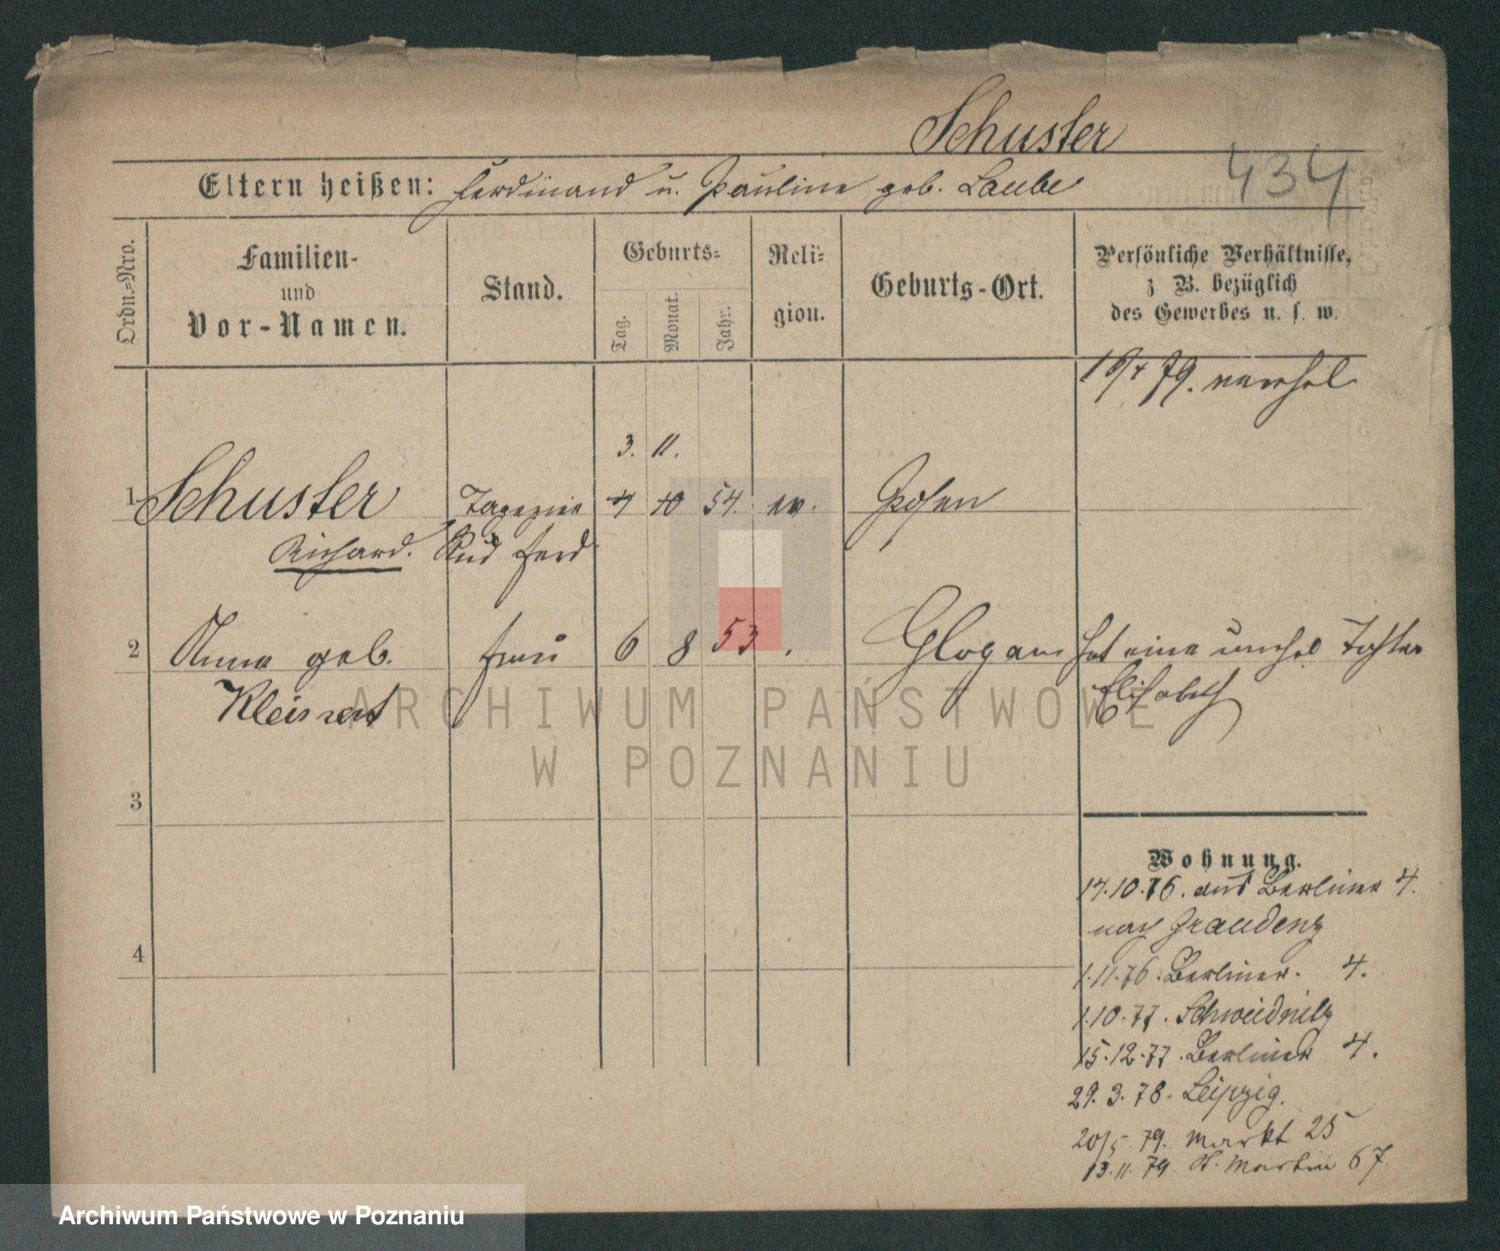 Schuster
434
Eltern heißen: Ferdinand u. Pauline geb. Laube
Ordn.=Nro.
Familien-
und
Vor-Namen.
Stand.
Geburts=
Tag.
Monat.
Jahr.
Reli=
gion.
Geburts-Ort.
Persönliche Verhältnisse,
z B. bezüglich
des Gewerbes u. s. w.
79.
3. 11.
1 Schuster Tapezier 4 10 54. ev. Posen
Richard. Ferd
2 Anna geb. Frau 6 8 53 Glogau hat eine unehel Tochter
Elisabeth
3
4
Wohnung.
17.10.76. aus Berliner 4.
nach Graudenz
1.11.76. Berliner. 4.
1.10.77. Schweidnitz
15.12.77. Berliner 4.
29.3.78. Leipzig.
20/5 79. Markt 25
13.11.79. St. Martin 67.
ARCHIWUM PAŃSTWOWE
W POZNANIU
Archiwum Państwowe w Poznaniu